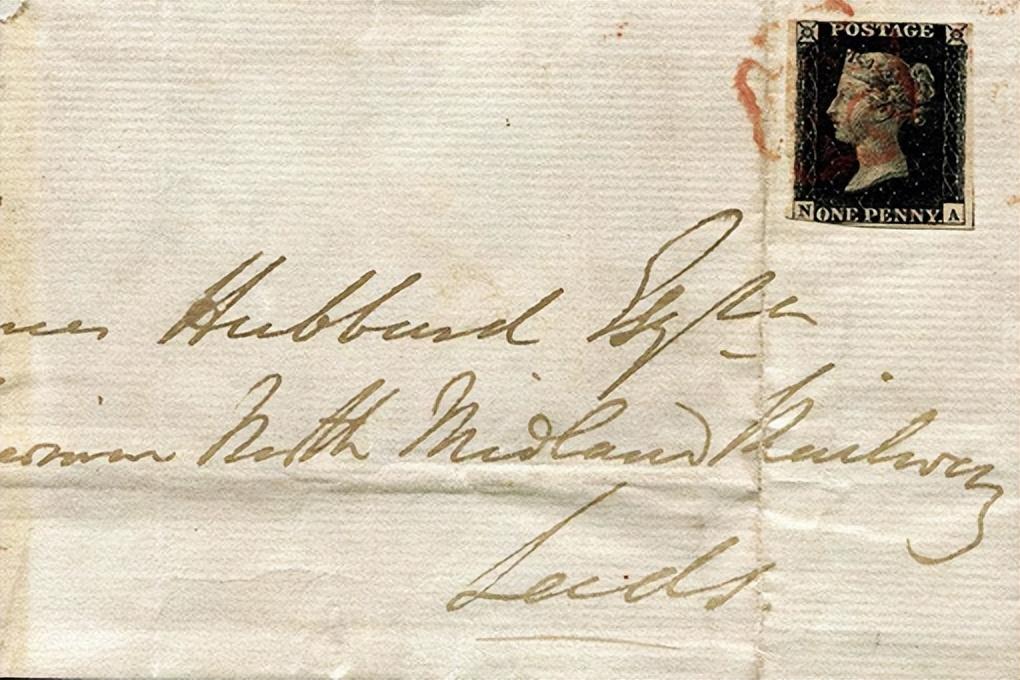 POSTAGE
N ONE PENNY. A
Hubbard Esqre
North Midland Railway
Leeds.